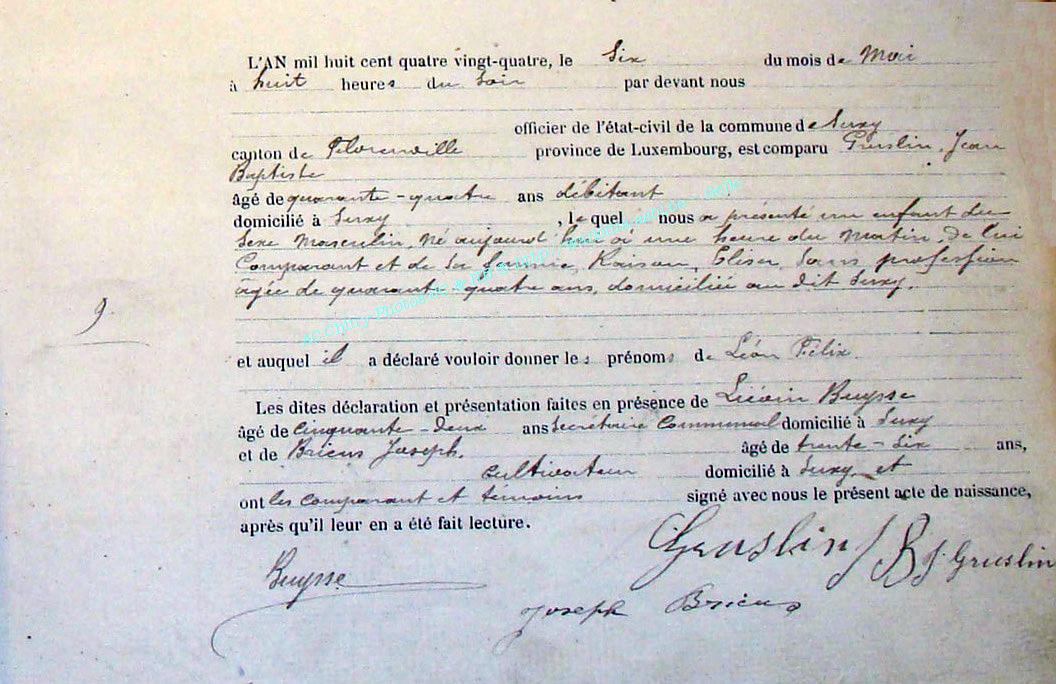 L'AN mil huit cent quatre vingt-quatre, le Six du mois de Mai
à huit heures du Soir par devant nous
officier de l'état-civil de la commune de Suxy
canton de Florenville province de Luxembourg, est comparu Gruslin, Jean
Baptiste
âgé de quarante-quatre ans débitant
domicilié à Suxy, lequel nous a présenté un enfant du
Sexe Masculin, Né aujourd'hui à une heure du Matin, de lui
Comparant et de Sa femme, Raison, Elisa, Sans profession
agée de quarante-quatre ans, domiciliée au dit Suxy.
9.
et auquel il a déclaré vouloir donner les prénoms de Léon Félix.
Les dites déclaration et présentation faites en présence de Liévin Buysse
âgé de Cinquante-Deux ans Secrétaire Communal domicilié à Suxy
et de Bricus Joseph. âgé de trente-Six ans,
cultivateur domicilié à Suxy et
ont les comparant et témoins signé avec nous le présent acte de naissance,
après qu'il leur en a été fait lecture.
Gruslin J B J. Gruslin
Buysse
Joseph Bricus